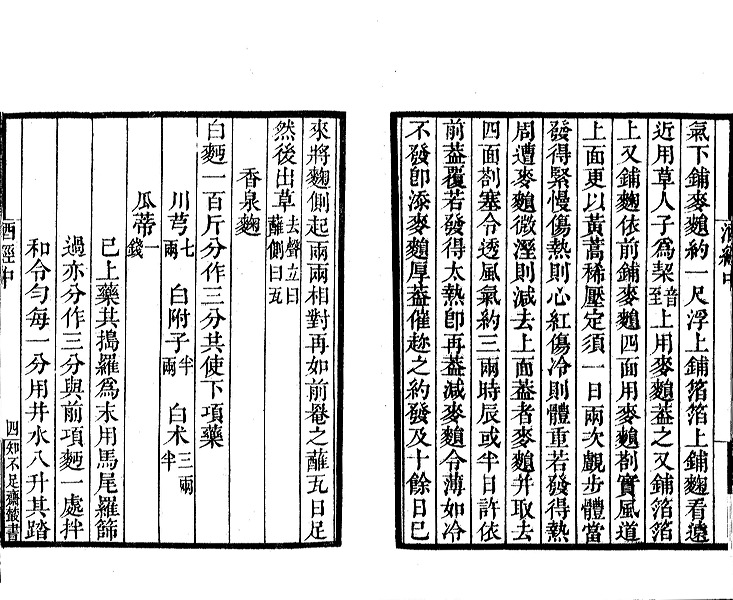 酒經中
氣下鋪麥䴬約一尺浮上鋪箔箔上鋪麴看遠
近用草人子爲契音至上用麥䴬葢之又鋪箔箔
上又鋪麴依前鋪麥䴬四面用麥䴬劄實風道
上面更以黃蒿稀壓定須一日兩次覷步體當
發得緊慢傷熱則心紅傷冷則體重若發得熱
周遭麥䴬微溼則減去上面葢者麥䴬并取去
四面劄塞令透風氣約三兩時辰或半日許依
前葢覆若發得太熱卽再葢減麥䴬令薄如冷
不發卽添麥䴬厚葢催趂之約發及十餘日已
來將麴側起兩兩相對再如前罨之蘸瓦日足
然後出草去聲立曰蘸側曰瓦
香泉麴
白麪一百斤分作三分共使下項藥
川芎七兩 白附子半兩 白术三兩半
瓜蔕一錢
已上藥共搗羅爲末用馬尾羅篩
過亦分作三分與前項麪一處拌
和令勻每一分用井水八升其踏
酒經中 四 知不足齋叢書